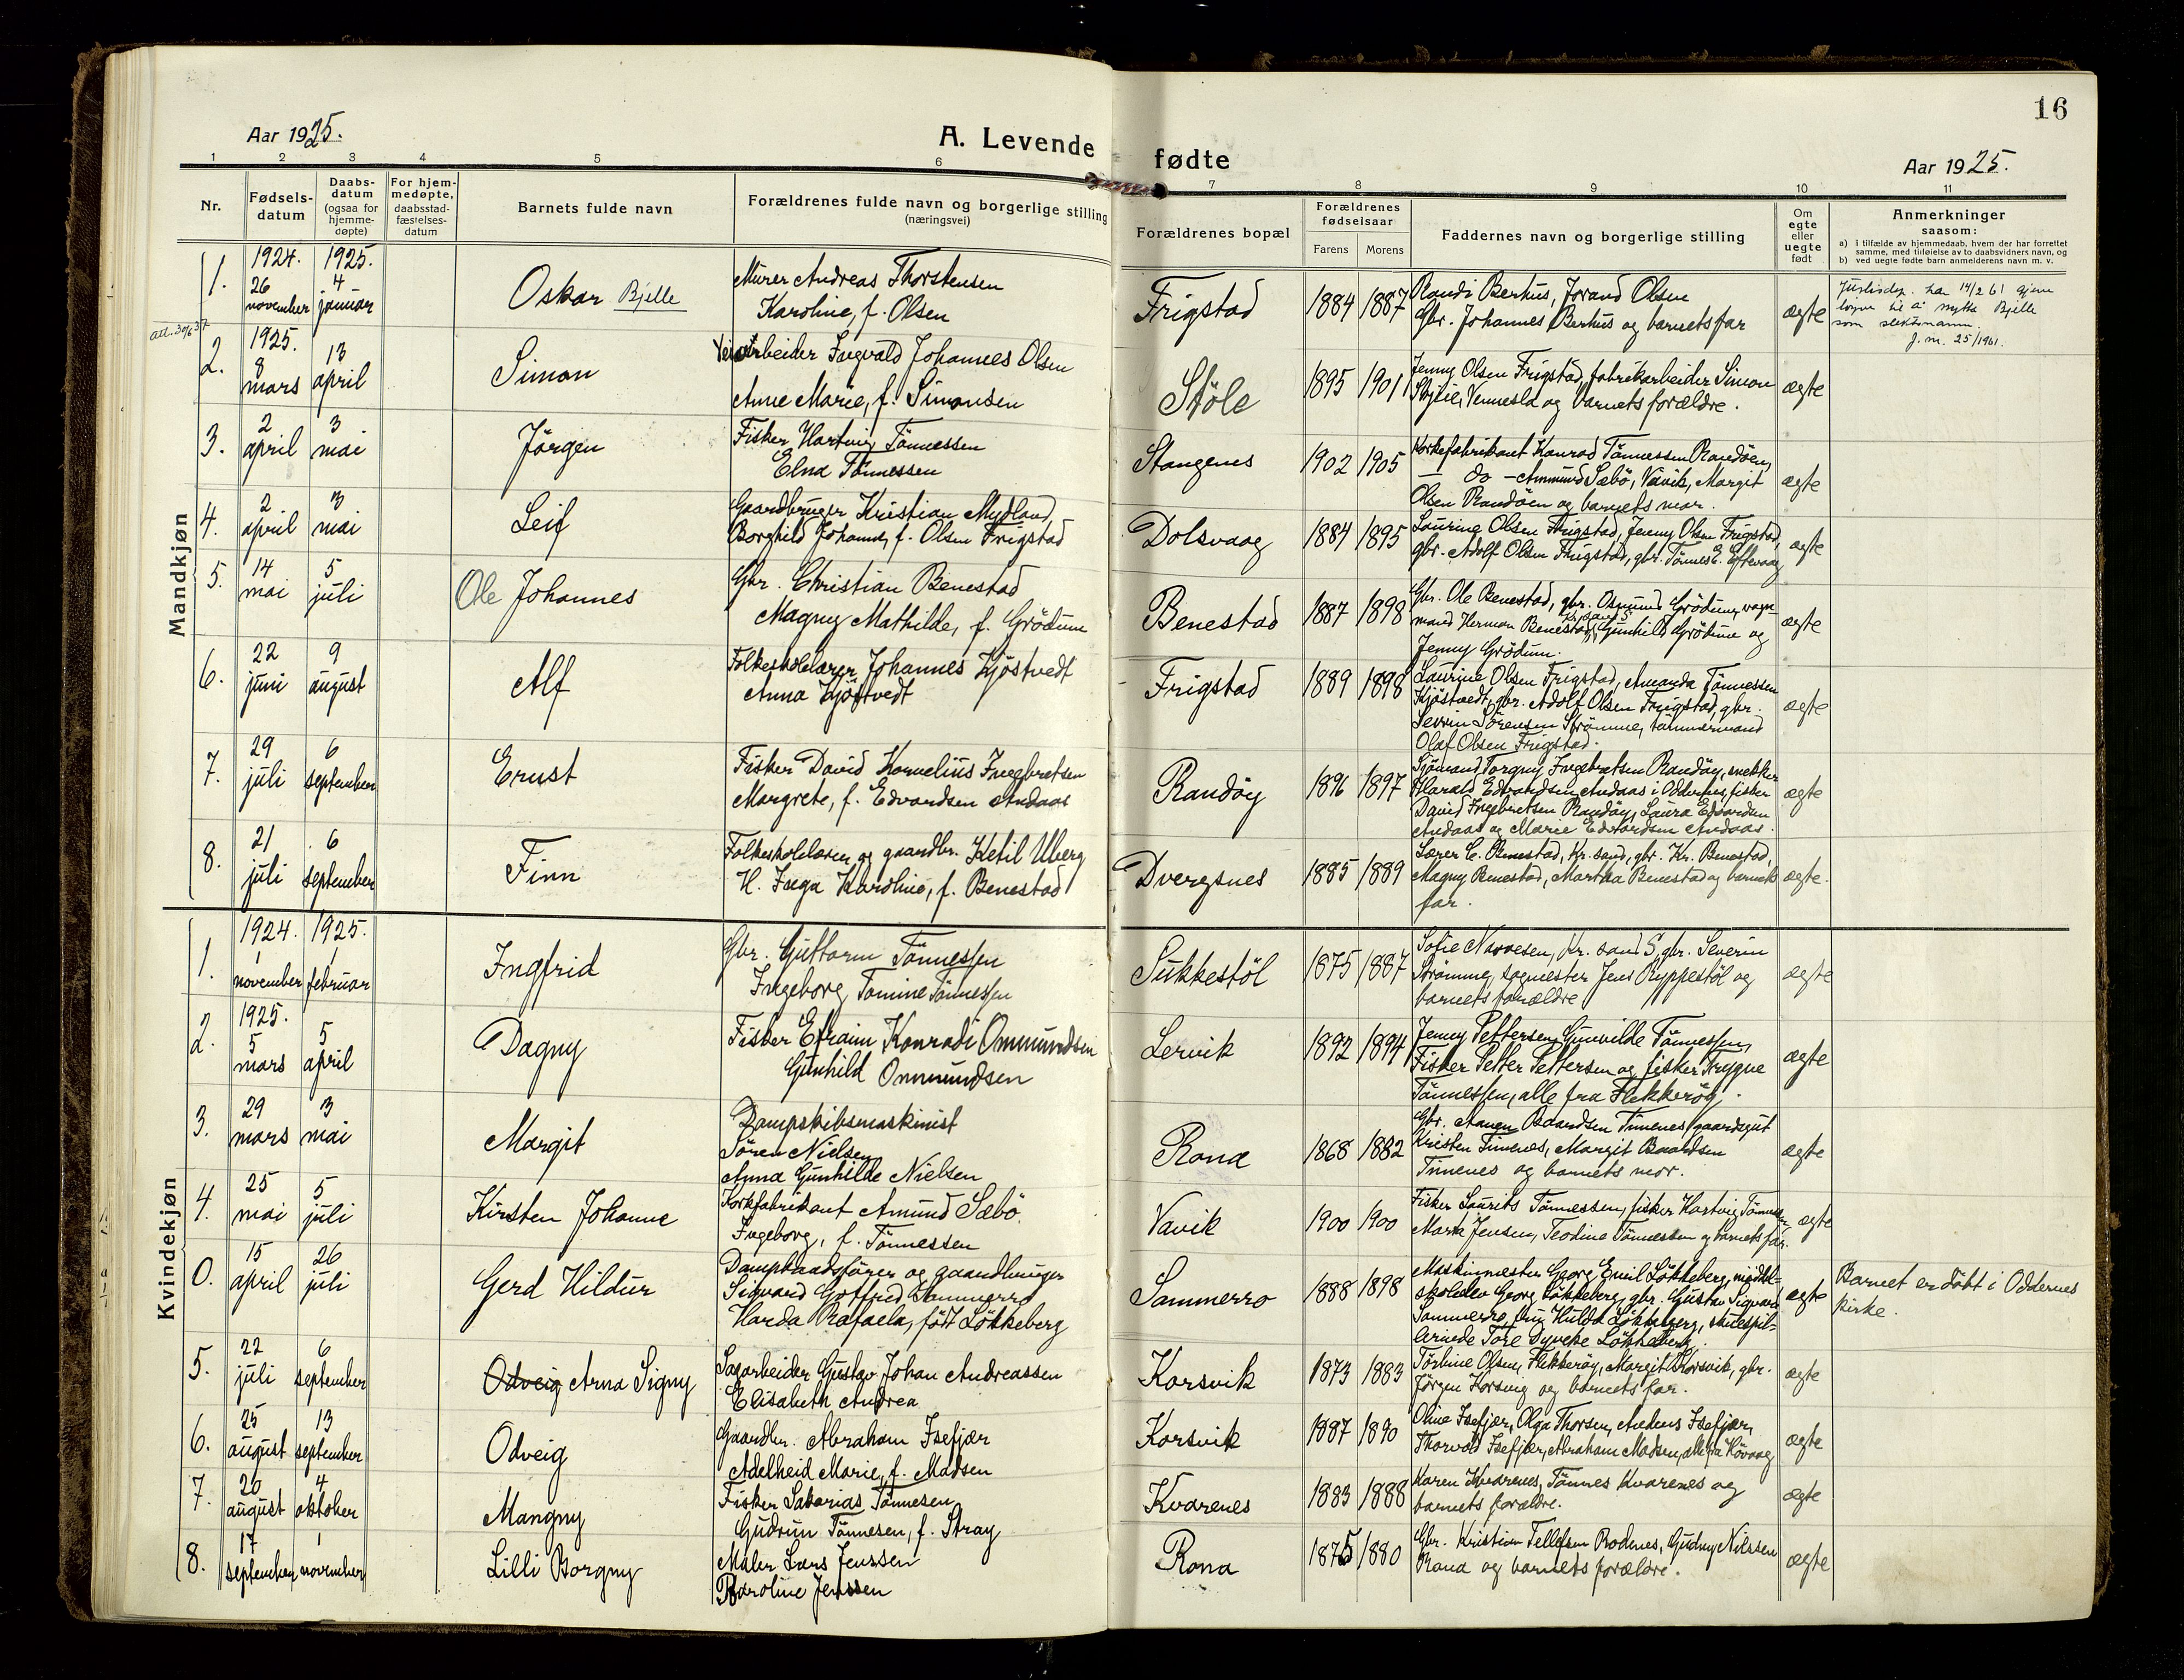 16
Aar 1925.
A. Levende fødte
Aar 1925.
1 2 3 4 5 6 7 8 9 10 11
Nr.
Fødsels-
datum
Daabs-
datum
(ogsaa for
hjemme-
døpte)
For hjem-
medøpte,
daabsstad-
fæstelses-
datum
Barnets fulde navn
Forældrenes fulde navn og borgerlige stilling
(næringsvei)
Forældrenes bopæl
Forældrenes
fødselsaar
Farens Morens
Faddernes navn og borgerlige stilling
Om
egte
eller
uegte
født
Anmerkninger
saasom:
a) i tilfælde av hjemmedaab, hvem der har forrettet
samme, med tilføielse av to daabsvidners navn, og
b) ved uegte fødte barn anmelderens navn m. v.
Mandkjøn
1.
1924. 1925.
26 4
november januar
Oskar Bjelle
Murer Andreas Thorstensen
Karoline, f. Olsen
Frigstad
1884 1887
Randi Berhus, Jorand Olsen
Gbr. Johannes Berhus og barnets far
ægte
Justisdep. har 14/2 61
som slektsnamn.
J. nr. 25/1961.
att. 30/6 37
2.
1925.
8 13
mars april
Simon
Veiarbeider Ingvald Johannes Olsen
Anne Marie, f. Simonsen
Støle
1895 1901
Jenny Olsen Frigstad, fabrikarbeider Simon
Vennesla og barnets forældre.
ægte
3.
2 3
april mai
Jörgen
Fisker Hartvig Tönnessen
Elna Tönnessen
Stangenes
1902 1905
Korkefabrikant Konrad Tönnessen Randöen,
— do — Ammund Sæbö, Vavik, Margit
Olsen Randöen og barnets mor.
ægte
4.
2 3
april mai
Leif
Gaardbruger Kristian Mydland
Borghild Johanne, f. Olsen Frigstad
Dolsvaag
1884 1895
Laurine Olsen Frigstad, Jenny Olsen Frigstad,
gbr. Adolf Olsen Frigstad, gbr. Tönnes E. Eftevaag
ægte
5.
14 5
mai juli
Ole Johannes
Gbr. Christian Benestad
Magny Mathilde, f. Grödum
Benestad
1887 1898
Gbr. Ole Benestad, gbr. Osmund Grödum, vogn-
mand Herman Benestad, Kr.sand S, Gunhild Grödum og
Jenny Grödum.
ægte
6.
22 9
juni august
Alf
Folkeskolelærer Johannes Kjöstvedt
Anna Kjöstvedt
Frigstad
1889 1898
Laurine Olsen Frigstad, Amanda Tönnessen
Kjöstvedt, gbr. Adolf Olsen Frigstad, gbr.
Severin Sörensen Strömme, tömmermand
Olaf Olsen Frigstad.
ægte
7.
29 6
juli september
Ernst
Fisker David Kornelius Ingebretsen
Margrete, f. Edvardsen Andaas
Randöy
1896 1897
Sjömand Torgny Ingebretsen Randöy, snekker
Harald Edvardsen Andaas i Oddernes, fisker
David Ingebretsen Randöy, Laura Edvardsen
Andaas og Marie Edvardsen Andaas.
ægte
8.
21 6
juli september
Finn
Folkeskolelærer og gaardbr. Ketil Uberg
H. Inga Karoline, f. Benestad
Dvergsnes
1885 1889
Lærer C. Benestad, Kr. sand, gbr. Kr. Benestad,
Magny Benestad, Martha Benestad og barnets
far.
ægte.
Kvindekjøn
1.
1924. 1925.
1 1
november februar
Ingfrid
Gbr. Guttorm Tönnessen
Ingeborg Tomine Tönnessen
Sukkestöl
1875 1887
Sofie Narvesen, Kr. sand S, gbr. Severin
Strömme, sagmester Jens Ryppestöl og
barnets forældre
ægte
2.
1925.
5 5
mars april
Dagny
Fisker Efraim Konradi Ommundsen
Gunhild Ommundsen
Lervik
1892 1894
Jenny Pettersen, Gunvilde Tönnessen,
Fisker Petter Pettersen og fisker Trygve
Tönnessen, alle fra Flekkeröy.
ægte
3.
29 3
mars mai
Margit
Dampskibsmaskinist
Sören Nielsen
Anna Gunhilde Nielsen
Rona
1868 1882
Gbr. Aanen Baardsen Timenes, gaardsgut
Kristen Timenes, Margit Baardsen
Timenes og barnets mor.
ægte
4.
25 5
mai juli
Kirsten Johanne
Korkfabrikant Amund Sæbö.
Ingeborg, f. Tönnessen
Vavik
1900 1900
Fisker Laurits Tönnessen, fisker Hartvig Tönnessen,
Marta Jensen, Teodine Tönnessen og barnets far.
ægte
0.
15 26
april juli
Gerd Hildur
Dampbaadsförer og gaardbruger
Sigvard Gotfred Sommerro
Harda Rafaela, född Lökkeberg
Sommerro
1888 1898
Maskinmester Georg Emil Lökkeberg, middel-
skoleelev Georg Lökkeberg, gbr. Gustav Sigvard
Sommerro, fru Hulda Lökkeberg, skuespil-
lerinde Tore Dyveke Lökkeberg.
ægte
Barnet er döbt i Oddernes
kirke.
5.
22 6
juli september
Odveig Arna Signy
Sagarbeider Gustav Johan Andreassen
Elisabeth Andrea
Korsvik
1873 1883
Torbine Olsen, Flekkeröy, Margit Korsvik, gbr.
Jörgen Korsvig og barnets far.
ægte
6.
25 13
august september
Odveig
Gaardbr. Abraham Isefjær
Adelheid Marie, f. Madsen
Korsvik
1887 1890
Oline Isefjær, Olga Thorsen, Anders Isefjær,
Thorvald Isefjær, Abraham Madsen, alle fra Hövaag
ægte
7.
26 4
august oktober
Mangny
Fisker Sakarias Tönnesen
Gudrun Tönnesen, f. Stray
Kvarenes
1883 1888
Karen Kvarenes, Tönnes Kvarenes og
barnets forældre.
ægte
8.
17 1
september november
Lilli Borgny
Maler Lars Jenssen
Karoline Jenssen
Rona
1875 1880
Gbr. Kristian Tellefsen Rodenes, Gudny Nilssen
Rona og barnets forældre.
ægte